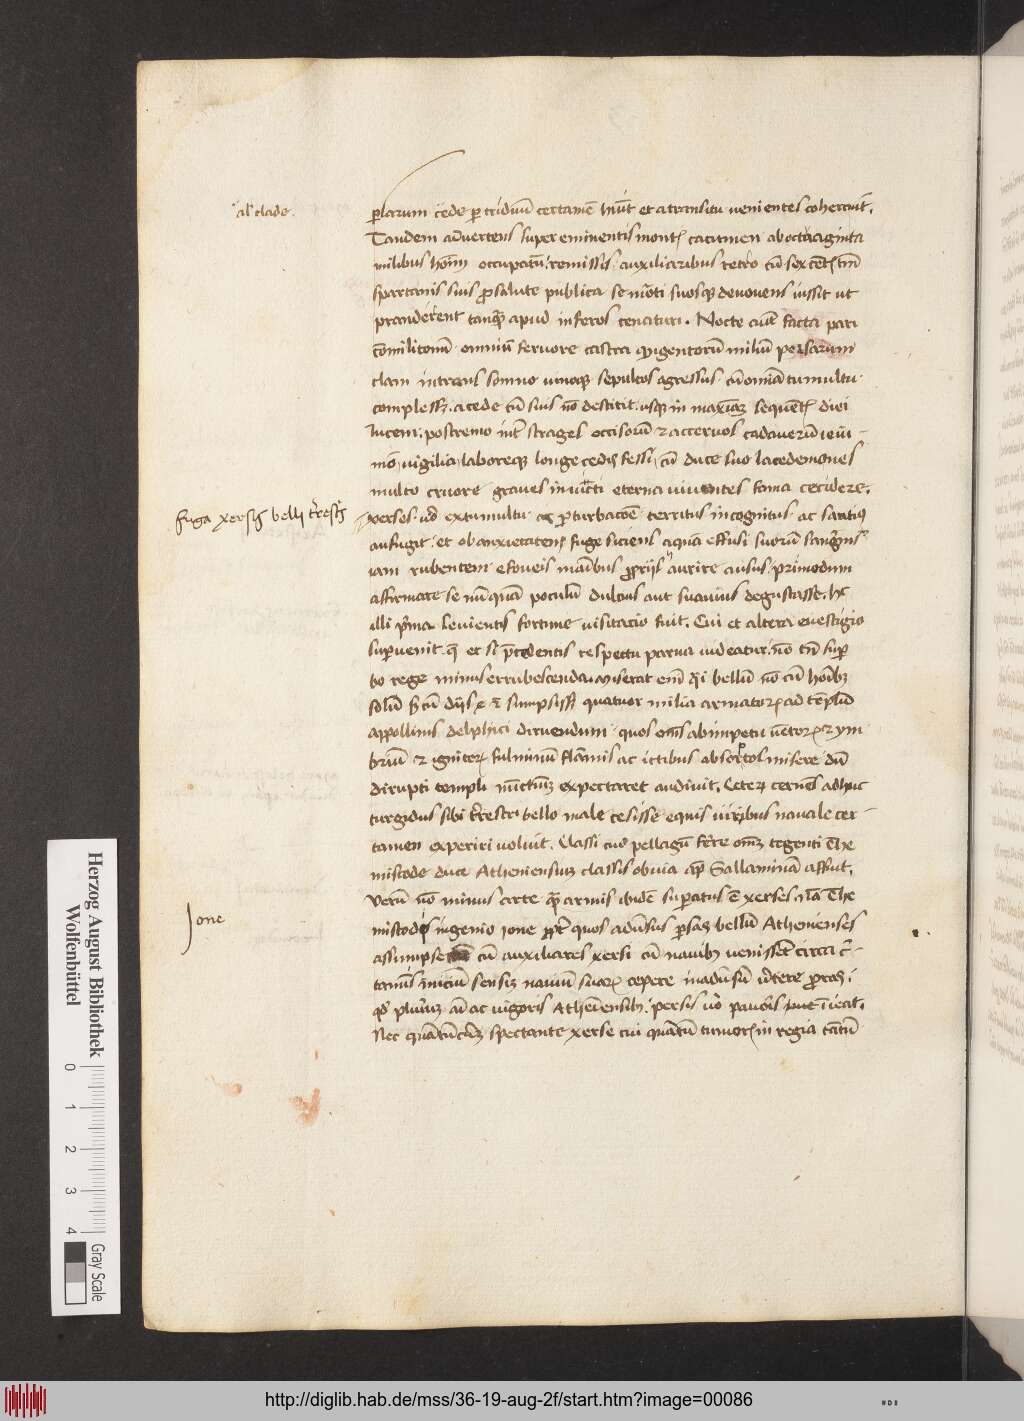 al' clade.
persarum cede per triduũ certamẽ hiũt et a transitu venientes cohercuit.
Tandem advertens super eminentis montis cacumen ab octuaginta
milibus hoĩm occupatũ. remissis auxiliaribus retro cũ sexcẽtis tm̃
spartanis suis pro salute publica se morti suosque devovens iussit ut
pranderent tanquam apud inferos cenaturi. Nocte aut̃ facta pari
cõmilitonũ omniũ fervore castra quingentorũ miliũ persarum
clam intrans somno vinoque sepultos agressus cũ omnia tumultu
complesset. a cede cũ suis nõ destitit usque in maximã sequẽtis diei
lucem. postremo inter strages occisorũ et acervos cadaverũ ieiu-
nio vigilia laboreque longe cedis fessi. cũ duce suo lacedemones
multo cruore graves invicti eterna viventes fama cecidere.
fuga xersis belli terestris
xerses vero ex tumultu ac perturbacõe territus incognitus ac saucius
aufugit. et ob anxietatem fuge siciens aquã effusi suorũ sanguinis
iam rubentem e foveis manibus propriis aurire ausus. primo dum
affirmare se nũquã poculũ dulcius aut suavius degustasse. hec
illi prima levientis fortune visitatio fuit. Cui et altera evestigio
supervenit. que et si precedentis respectu parva videatur. nõ tñ super-
bo rege minus errubescenda. miserat eñ qui bellũ nõ cũ hoĩbus
solũ sed cũ diis sumpsisset quatuor milia armatorum ad tẽplũ
appollinis delphici diruendum. quos oẽs ab impetu ventorum et ym-
briũ et ignitorum fulminũ flãmis ac ictibus absorptos misere dũ
dirupti templi nuncium expectaret audivit. Ceterum cernẽs adhuc
turgidus sibi terrestri bello male cesisse equis viribus navale cer-
tamen experiri voluit. Classi cuius pellagũ fere om̃e tegenti The-
mistode duce Atheniensium classis obvia apud Sallaminã affuit.
Verũ nõ minus arte quam armis ibidẽ superatus ẽ xerses. Nam The-
Jone
mistodes ingenio Jone propter quos adversus persas bellũ Athenienses
assumpserant cũ auxiliares xersi cũ navibus venissent circa cer-
taminis inicium sensim navium suarum cepere in adversum vertere proras.
quod plurimum animi ac vigoris Atheniensibus. persis vero pavoris iniecit.
Nec quãtũcũque spectante xerse cui quãtũ timoris in regia tantũ
Herzog August Bibliothek
Wolfenbüttel
0 1 2 3 4 Gray Scale
http://diglib.hab.de/mss/36-19-aug-2f/start.htm?image=00086